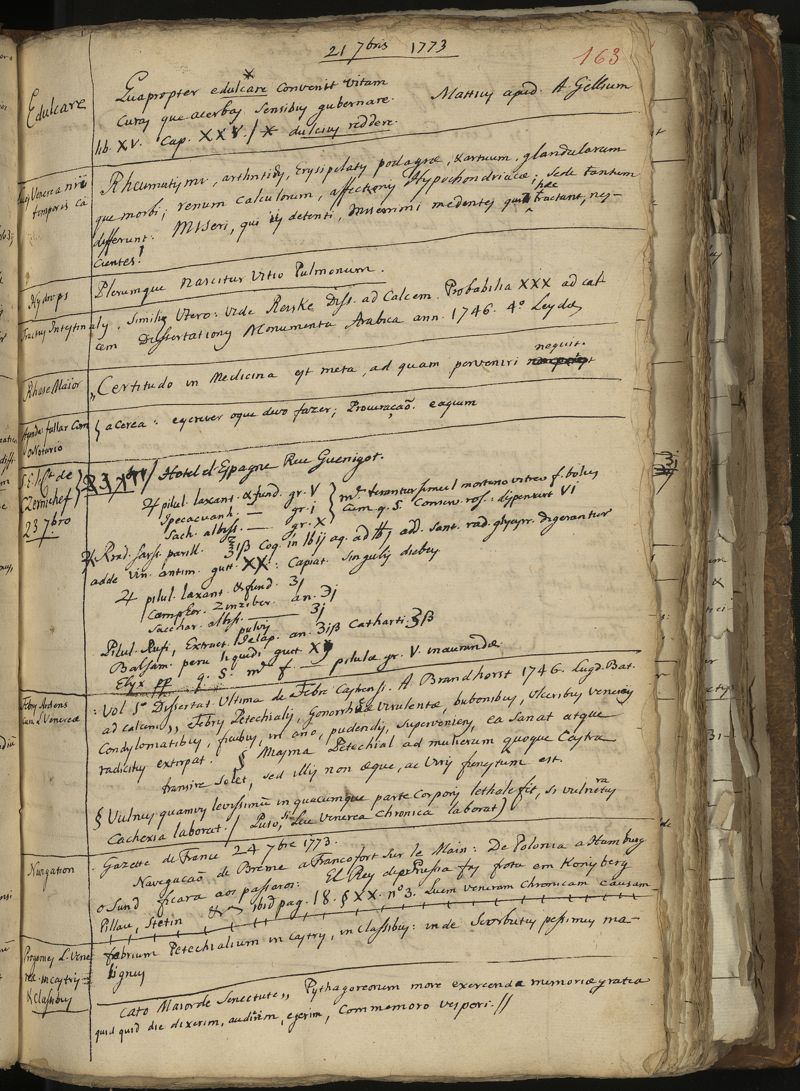 21 7bris 1773
163
Edulcare
Quapropter edulcare convenit vitam
Curas que acerbas sensibus gubernare. Mattius apud. A. Gellium
lib. XV. Cap. XXV. / * dulcius reddere.
Lues Venerea nri
temporis ca
Rheumatismi, arthritidis, Erysipelatis podagræ, artuum, glandularum
que morbi; renum calculorum, affectionis Hypochondriacæ; sede tantum
differunt: Miseri, qui iis detenti, Miserrimi medentes qui hæc tractant, nes-
cientes!
Hydrops
Plerumque nascitur vitio Pulmonum.
Tractus Intestinalis. Similis Utero: vide Reiske Diss. ad Calcem. Probabilia XXX ad cal
cem Dissertationis Monumenta Arabica ann. 1746. 4º Leydæ
Rhase Maior
„ Certitudo in Medicina est meta, ad quam perveniri nequit.
fallar Com
o Notario
acerca: escrever o que devo fazer; Procuração. e aqum
S. E. le Cte de
Czernichef
23 7bro
23 7bre / Hotel d'Espagne Rue Guenigot.
♃ pilul. laxant. &fund. gr. V
Ipecacuanh. — gr. i
Sach. albiss. — gr. X
terantur simul mortario vitreo f. bolus
cum q. S. Conserv. ros: dispensent. VI
♃ Rad. Sars. parill. ℥iß Coq. in lb ij aq. ad lb j add. Sant. rad. glycyrr. digerantur
adde Vin. antim. gutt. XX: Capiat singulis diebus
♃ pilul. laxant. &fund. ʒj
Camphor. Zinziber. an. ʒj
Sacchar. albiss. — ʒj
pulvis
Pilul. Rufi, Extract. Jalap. an. ʒiß Cathart. ʒß
Balsam. peru liquidi gutt X
Elyx pp q. S. m. f. — pilulæ gr. V. inaurandæ
Febris Ardens
cum L. Venerea
: Vol 1º Dissertat. Ultima de Febre Castrensi. A Brandhorst 1746. Lugd. Bat.
ad calcum „ Febris Petechialis, Gonorrhæ Virulentæ, bubonibus, Ulceribus venereis
Condylomatibus, ficubus, in ano, pudendis, superveniens, ea sanat atque
radicitus extirpat. § Maxma Petechial ad mulierum quoque Castra
transire solet, sed illis non æque, ac Viris funestum est.
§ Vulnus quamvis levissimum in quacumque parte Corporis lethale fit, si vulnera
Cachexia laborat. / Puto, si Lue Venerea Chronica laborat)
Navigation
Gazette de France 24 7bre 1773.
Navegação de Brême a Francofort sur le Main: De Polonia a Hamburg
o Sund ficara aos passaros: El Rey de Prussia fes frota em Konisberg
Pillau, Stetin &c ibid pag. 18. § XX. nº 3. Luem Veneream Chronicam causam
L. Vene
reæ in castris
& Classibus
febrium Petechialium in Castris, in Classibus: inde Scorbutus pessimus ma-
lignus
Cato Maior de Senectute „ Pythagoreorum more exercendæ memoriæ gratia
quid quid die dixerim, audiverim, egerim, Commemoro vesperi. //